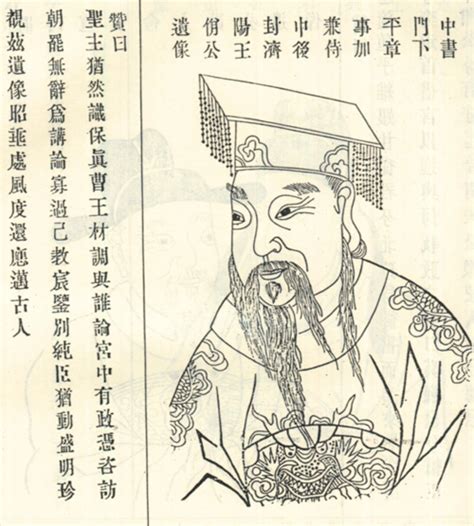 中書
門下
平章
事加
兼侍
中後
封濟
陽王
佾公
遺像
贊曰
聖主猶然識保眞曹王材調與誰論宮中有政憑咨訪
朝罷無辭爲講論寡過己教宸鑒別純臣猶動盛明珍
覩茲遺像昭垂處風度還應邁古人